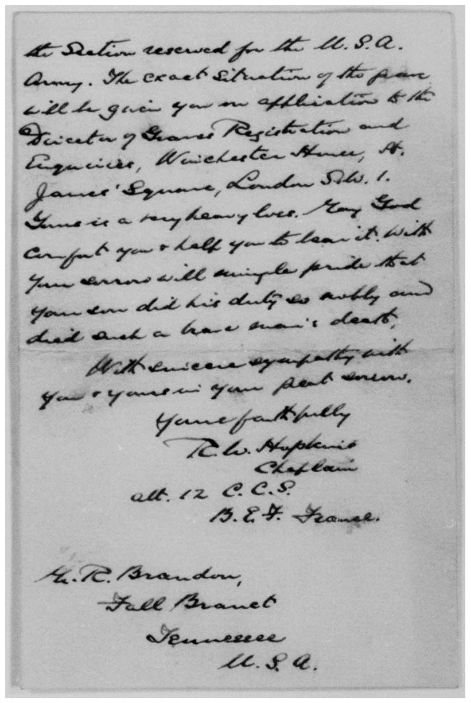 the Section reserved for the U.S.A.
Army. The exact situation of the grave
will be given you on application to the
Director of Graves Registration and
Enquiries, Winchester House, St.
James' Square, London S.W. 1.
Yours is a very heavy loss. May God
comfort you & help you to bear it. With
your sorrow will mingle pride that
your son did his duty so nobly and
died such a brave man's death.
With sincere sympathy with
you & yours in your great sorrow.
Yours faithfully
R.W. Hopkins
Chaplain
att. 12 C.C.S.
B.E.F. France.
Mr. R. Brandon,
Fall Branct
Tennessee
U.S.A.